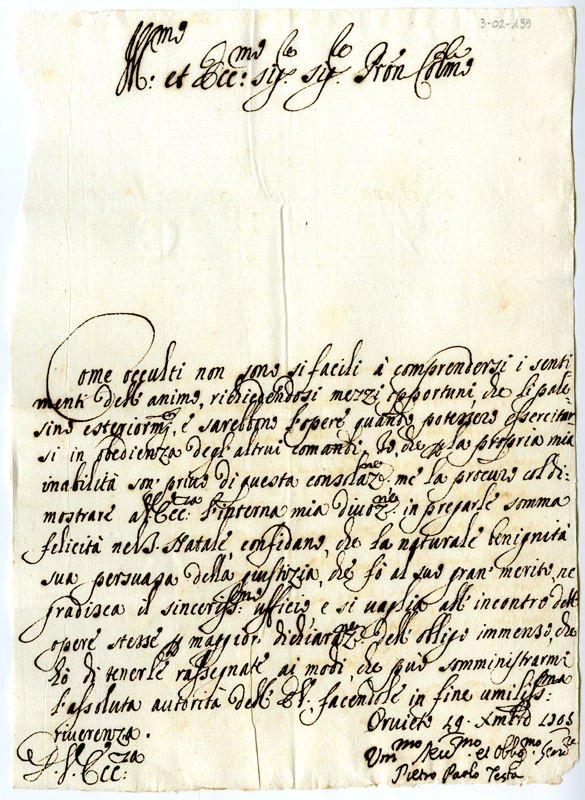 3-02-139
Ill:mo et Ecc:mo sig:re sig:re Prōn Col:mo
Come occulti non sono sì facili à comprendersi i senti
menti dell' animo, richiedendosi mezzi opportuni, che li pale
sino esteriorm:te, e sarebbono l'opere quando potessero essercitar
si in obedienza degl' altrui comandi. Io, che p la propria mia
inabilità son' privo di questa consolaz:ne, me la procuro col di:
mostrare all' Ecc:za V. l'interna mia divoz:ne in pregarle somma
felicità nel S. Natale, confidano, che la naturale benignità
sua persuasa della giustizia, che fò al suo gran' merito, ne
gradisca il sinceriss:mo ufficio, e si vaglia all' incontro dell'
opere stesse p maggior dichiaraz:ne dell' obligo immenso, che
hò di tenerle rassegnate ai modi, che può somministrarmi
l'assoluta autorità dell' E.V. facendole in fine umiliss:ma
riverenza.
Orvieto 19. Xmbre 1705
D. V. Ecc:za
Um:mo Dev:mo et Obbg:mo Servre
Pietro Paolo Testa